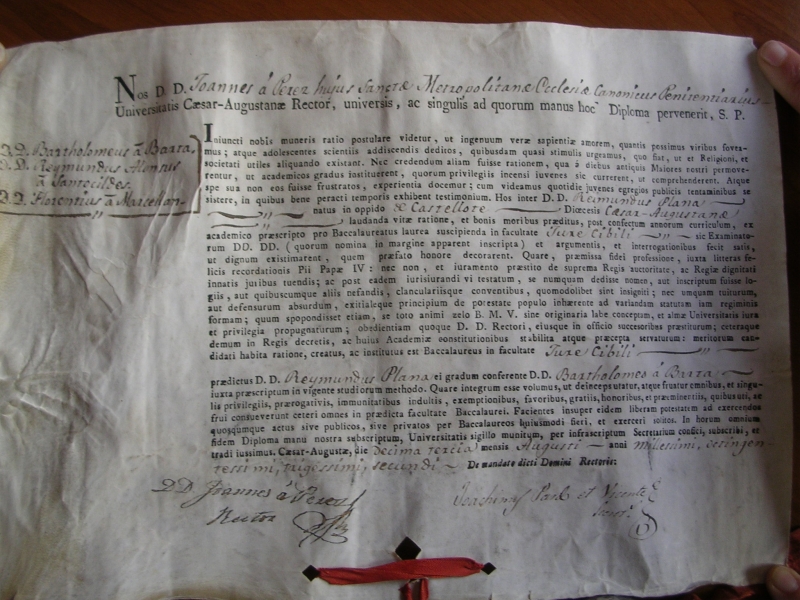 Nos D. D. Joannes à Perez hujus Sanctæ Metropolitanæ Ecclesiæ Canonicus Penitentiarius
Universitatis Cæsar-Augustanæ Rector, universis, ac singulis ad quorum manus hoc Diploma pervenerit, S. P.
D.D. Bartholomeus à Barta
D.D. Reymundus Alontus
à Santocildes
D.D. Florentius à Marsellan
Iniuncti nobis muneris ratio postulare videtur, ut ingenuum veræ sapientiæ amorem, quantis possimus viribus fovea-
mus; atque adolescentes scientiis addiscendis deditos, quibusdam quasi stimulis urgeamus, quo fiat, ut et Religioni, et
societati utiles aliquando existant. Nec credendum aliam fuisse rationem, qua à dictis antiquis Maiores nostri permove-
rentur, ut academicos gradus instituerent, quorum privilegiis incensi iuvenes sic currerent, ut comprehenderent. Atque
spe sua non eos fuisse frustratos, experientia docemur; cum videamus quotidie juvenes egregios publicis tentaminibus se
sistere, in quibus bene peracti temporis exhibent testimonium. Hos inter D. D. Reimundus Plana
natus in oppido de Castellote Diœcesis Cæsar-Augustanæ
laudanda vitæ ratione, et bonis moribus præditus, post confectum annorum curriculum, ex
academico præscripto pro Baccalaureatus laurea suscipienda in facultate Jure Cibili sic Examinato-
rum DD. DD. (quorum nomina in margine apparent inscripta) et argumentis, et interrogationibus fecit satis,
ut dignum existimarent, quem præfato honore decorarent. Quare, præmissa fidei professione, iuxta litteras fe-
licis recordationis Pii Papæ IV: nec non, et iuramento præstito de suprema Regis auctoritate, ac Regiæ dignitati
innatis juribus tuendis; ac post eadem iurisiurandi vi testatum, se numquam dedisse nomen, aut inscriptum fuisse lo-
giis, aut quibuscumque aliis nefandis, clancularisque conventibus, quomodolibet sint insigniti; nec umquam tuiturum,
aut defensurum absurdum, exitialeque principium de potestate populo inhærente ad variandam statutam iam regiminis
formam; quum spopondisset etiam, se toto animi zelo B. M. V. sine originaria labe conceptam, et almæ Universitatis iura
et privilegia propugnaturum; obedientiam quoque D. D. Rectori, eiusque in officio succesoribus præstiturum; ceteraque
demum in Regis decretis, ac huius Academiæ constitutionibus stabilita atque præcepta servaturum: meritorum can-
didati habita ratione, creatus, ac institutus est Baccalaureus in facultate Jure Cibili
prædictus D. D. Reymundus Plana ei gradum conferente D.D. Bartholomeo à Barta
iuxta præscriptum in vigente studiorum methodo. Quare integrum esse volumus, ut deinceps utatur, atque fruatur omnibus, et singu-
lis privilegiis, prærogativis, immunitatibus indultis, exemptionibus, favoribus, gratiis, honoribus, et præminentiis, quibus uti, se
frui consueverunt ceteri omnes in prædicta facultate Baccalaurei. Facientes insuper eidem liberam potestatem ad exercendos
quosqumque actus sive publicos, sive privatos per Baccalaureos huiusmodi fieri, et exerceri solitos. In horum omnium
fidem Diploma manu nostra subscriptum, Universitatis sigillo munitum, per infrascriptum Secretarium confici, subscribi, et
tradi iussimus. Cæsar-Augustæ, die Decima tercia mensis Augusti anni milessimi, octingen-
tessimi, trigessimi, secundi De mandato dicti Domini Rectoris:
D.D. Joannes à Perez
Rector
Joachinus Parl et Vicente
Secret.